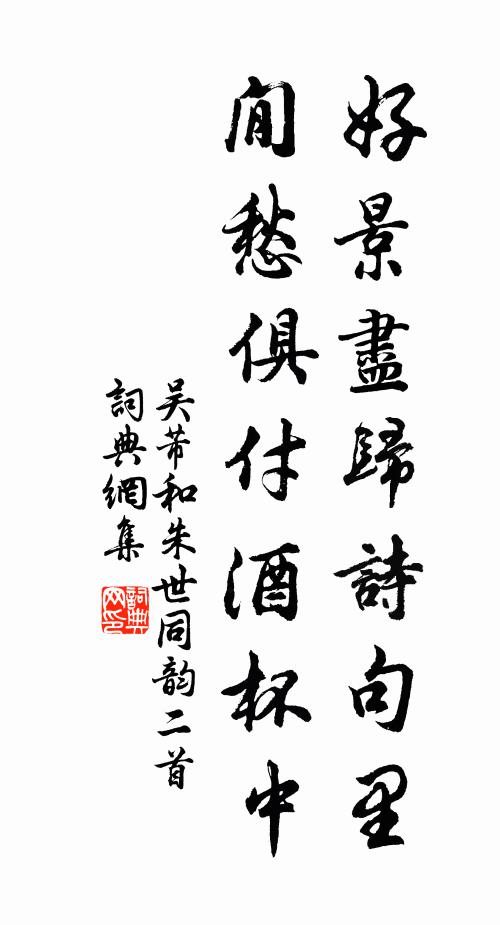 好景盡歸詩句里
閒愁俱付酒杯中
吴芾和朱世同韵二首
詞典網集
詞典网印